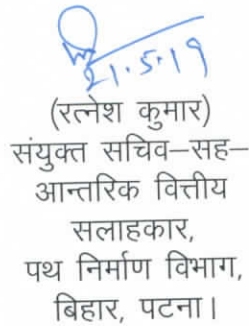 21.5.19
(रत्नेश कुमार)
संयुक्त सचिव–सह–
आन्तरिक वित्तीय
सलाहकार,
पथ निर्माण विभाग,
बिहार, पटना।